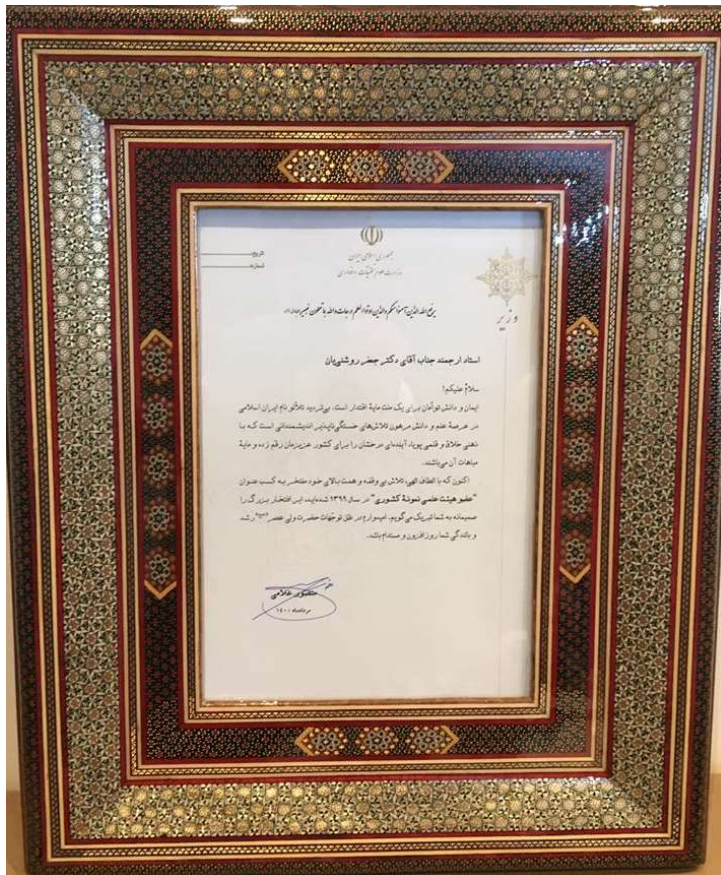 جمهوری اسلامی ایران
وزارت علوم، تحقیقات و فناوری
تاریخ
شماره
وزیر
یرفع الله الذین آمنوا منکم والذین اوتوا العلم درجات والله بما تعملون خبیر
استاد ارجمند جناب آقای دکتر جعفر روشنی‌یان
سلامٌ علیکم؛
ایمان و دانش توأمان برای یک ملت مایهٔ اقتدار است. بی‌تردید تلألؤ نام ایران اسلامی
در عرصهٔ علم و دانش مرهون تلاش‌های خستگی‌ناپذیر اندیشمندانی است که با
ذهنی خلاق و قلمی پویا، آینده‌ای درخشان را برای کشور عزیزمان رقم زده و مایهٔ
مباهات آن می‌باشند.
اکنون که با الطاف الهی، تلاش بی وقفه و همت بالای خود مفتخر به کسب عنوان
"عضو هیئت علمی نمونهٔ کشوری" در سال ۱۳۹۹ شده‌اید، این افتخار بزرگ را
صمیمانه به شما تبریک می‌گویم. امیدوارم در ظلّ توجّهات حضرت ولی عصر رشد
و بالندگی شما روزافزون و مستدام باشد.
منصور غلامی
مردادماه ۱۴۰۰